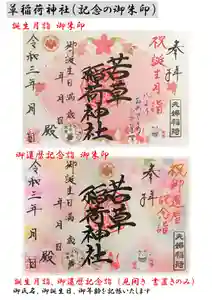 草稲荷神社(記念の御朱印)
誕生月詣 御朱印
奉拝
祝誕生月詣
若草
稲荷神社
御誕生日満 歳
年 月 日
令和三年 月 日
殿
御還暦記念詣 御朱印
奉拝
祝御還暦
記念詣
若草
稲荷神社
御誕生日満 歳
年 月 日
令和三年 月 日
殿
誕生月詣、御還暦記念詣(見開き 書置きのみ)
御氏名、御誕生日、御年齢を記帳いたします